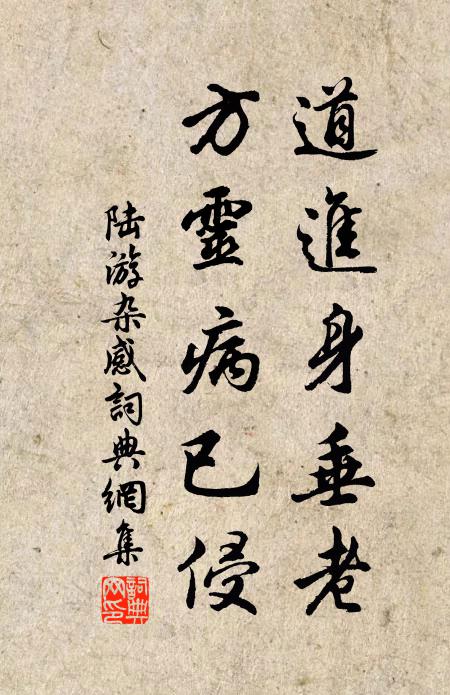 道進身垂老
方靈病已侵
陆游杂感詞典網集
詞典